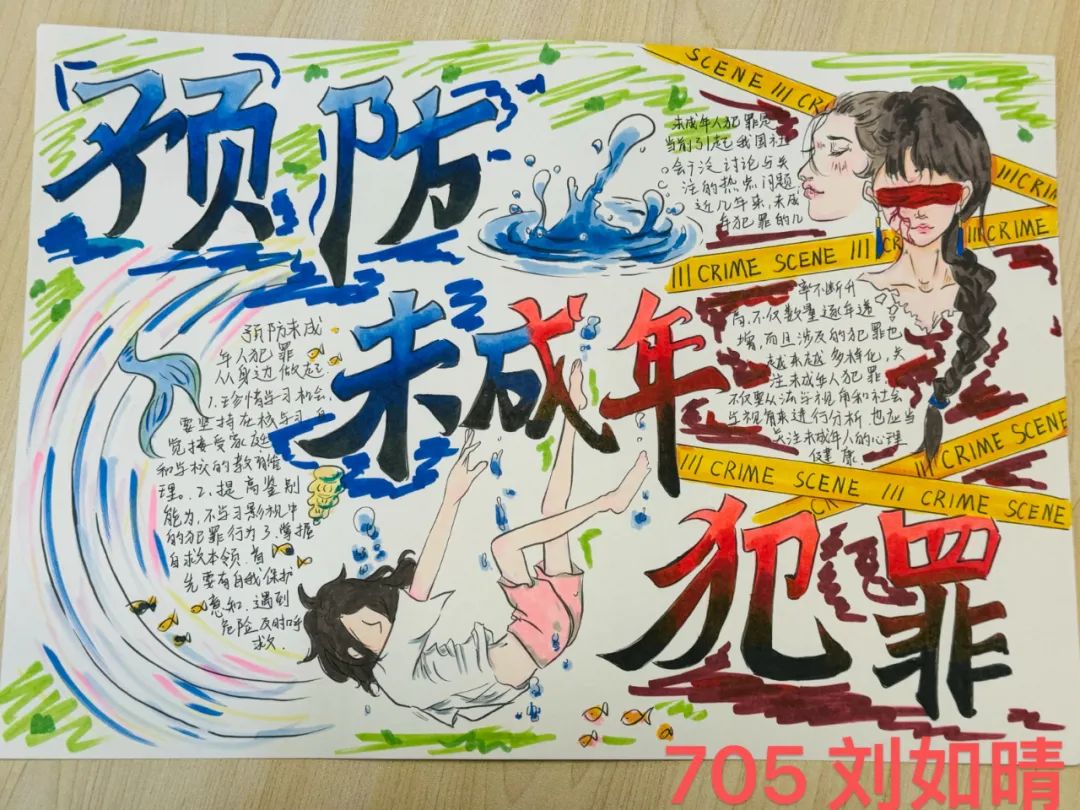 预防
未成年
犯罪
SCENE /// CRI
未成年人犯罪是
当前引起我国社
会广泛讨论与关
注的热点问题
近几年来,未成
年犯罪的几
/// CRIM
/// CRIME SCENE /// CR
/// CRIME
率不断升
高,不仅数量逐年递
增,而且涉及的犯罪也
越来越多样化,关
注未成年人犯罪,
不仅要从法学视角和社会
学视角来进行分析,也应当
关注未成年人的心理
健康.
/// CRIME SCENE
/// CRIME SCENE /// CRIME SCENE
预防未成
年人犯罪
从身边做起.
1.珍惜学习机会,
要坚持在校学习,自
觉接受家庭
和学校的教育管
理。2.提高鉴别
能力,不学习影视中
的犯罪行为3.掌握
自救本领.首
先要有自我保护
意知.遇到
危险及时呼
救.
705 刘如晴